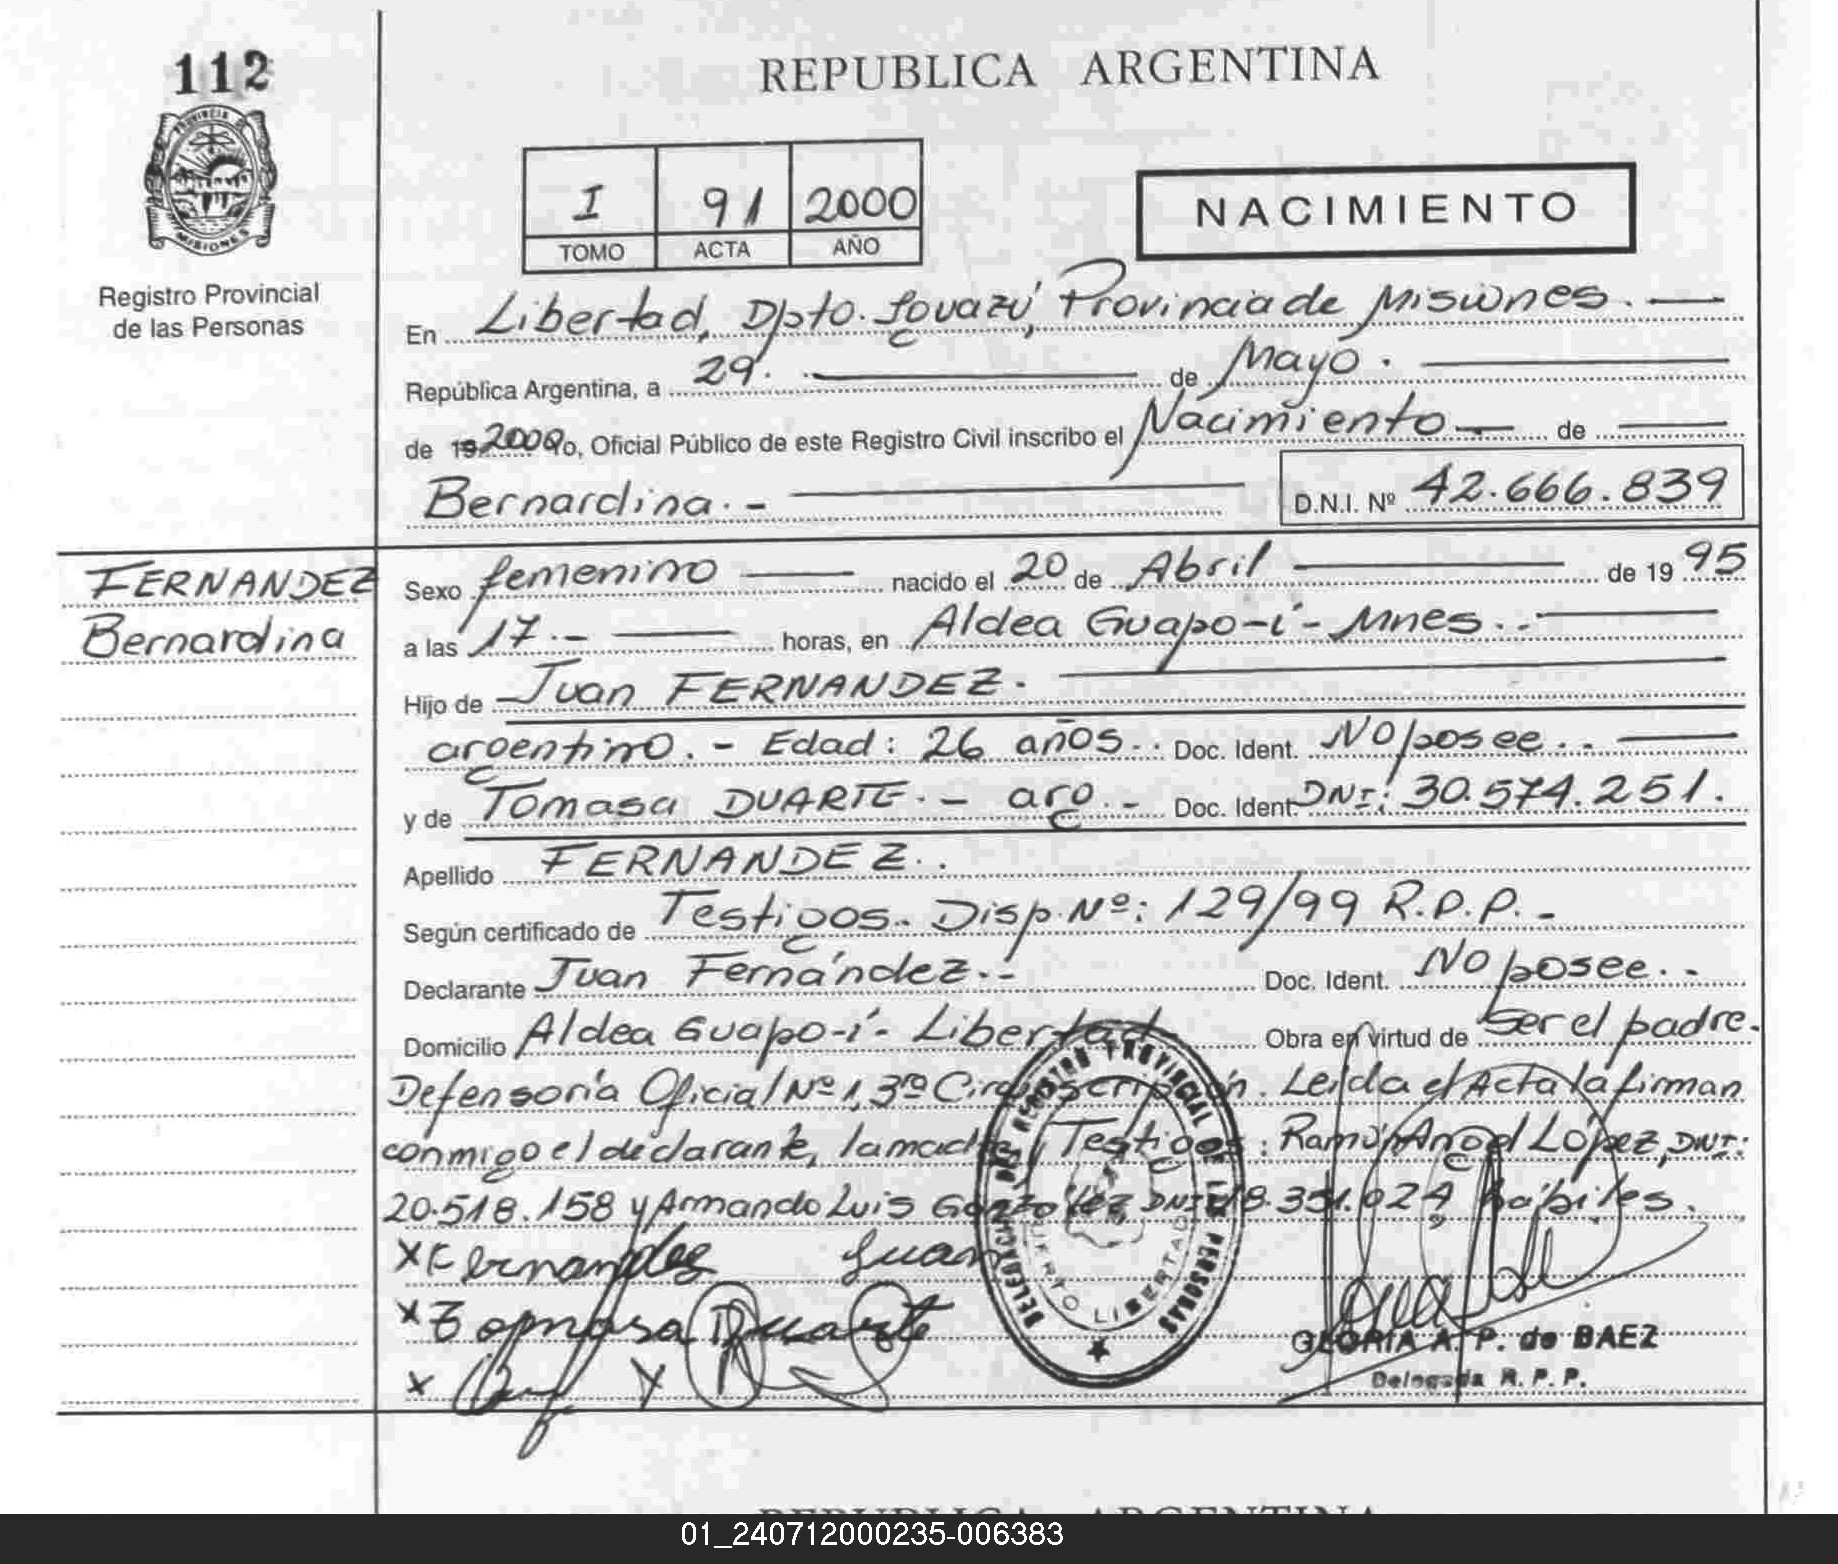 112
REPUBLICA ARGENTINA
PROVINCIA DE
MISIONES
I 91 2000
TOMO ACTA AÑO
NACIMIENTO
Registro Provincial
de las Personas
En Libertad, Dpto. Iguazú, Provincia de Misiones. —
República Argentina, a 29. — de Mayo. —
de 19 2000 Yo, Oficial Público de este Registro Civil inscribo el Nacimiento — de —
Bernardina. - — D.N.I. Nº 42.666.839
FERNANDEZ
Bernardina
Sexo femenino — nacido el 20 de Abril — de 19 95
a las 17.- — horas, en Aldea Guapo-í - Mnes.. —
Hijo de Juan FERNANDEZ. —
argentino. - Edad: 26 años.. Doc. Ident. No posee.. —
y de Tomasa DUARTE. - arg. - Doc. Ident. DNI: 30.574.251.
Apellido FERNANDEZ..
Según certificado de Testigos. Disp. Nº: 129/99 R.P.P. -
Declarante Juan Fernández.- Doc. Ident. No posee..
Domicilio Aldea Guapo-í - Libertad Obra en virtud de ser el padre.
Defensoría Oficial Nº 1, 3ra Circunscripción. Leída el Acta la firman
conmigo el declarante, la madre y Testigos: Ramón Angel López, DNI:
20.518.158 y Armando Luis González DNI 18.351.024 hábiles.
X Fernandez Juan
X Tomasa Duarte
X X
DELEGACION DEL REGISTRO PROVINCIAL DE LAS PERSONAS
PUERTO LIBERTAD
GLORIA A. P. de BAEZ
Delegada R. P. P.
REPUBLICA ARGENTINA
01_240712000235-006383